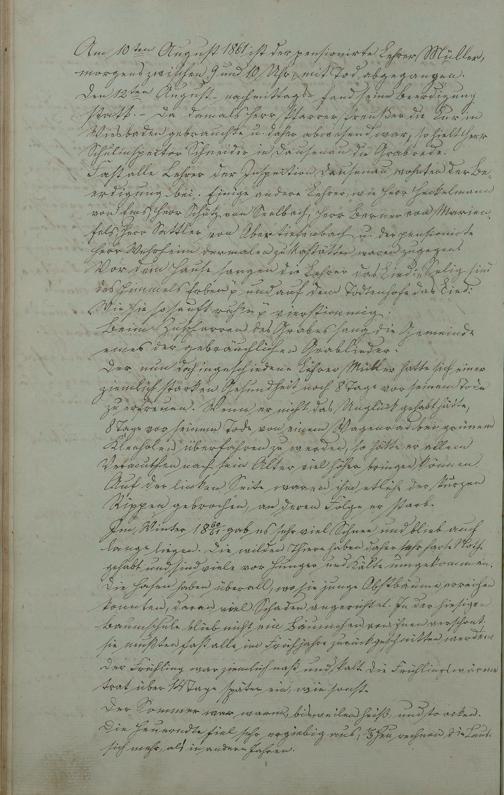 Am 10ten August 1861 ist der pensionirte Lehrer Müller,
morgens zwischen 9 und 10 Uhr, mit Tod abgegangen.
Den 12ten August nachmittags fand seine Beerdigung
statt. Da damals Herr Pfarrer die Kur in
Wiesbaden gebrauchte u. daher abwesend war, so hielt Herr
Schulinspector Schneider in Dausenau die Grabrede.
Fast alle Lehrer der Inspection Dausenau wohnten der Be-
erdigung bei. Einige andere Lehrer, wie Herr Heckelmann
von Ems, Herr Schütz von Seelbach, Herr Berner von Marien-
fels, Herr Sattler von Obertiefenbach u. der pensionirte
Herr dermalen zu Nastätten waren zugegen.
Vor dem Hause sangen die Lehrer das Lied: Selig sind
des Himmels Erben p und auf dem Todtenhofe das Lied:
Wie sie so sanft ruhn p vierstimmig.
Beim Zuscharren des Grabes sang die Gemeinde
eines der gebräuchlichen Grablieder.
Der nun dahingeschiedene Lehrer Müller hatte sich einer
ziemlich starken Gesundheit noch 8 Tage vor seinem Tode
zu erfreuen. Wenn er nicht das Unglück gehabt hätte,
8 Tage vor seinem Tode von einem Wagen
überfahren zu werden, so hätte er allem
Vermuthen nach sein Alter viel höher bringen können.
Auf der linken Seite waren ihm etliche der kurzen
Rippen gebrochen, an deren Folge er starb.
Im Winter 1860/61 gab es sehr viel Schnee und blieb auch
lange liegen. Die wilden Thiere haben daher sehr harte Noth
gehabt und sind viele vor Hunger und Kälte umgekommen.
Die Hasen haben überall, wo sie junge Obstbäume erreichen
konnten, daran viel Schaden angerichtet. In der hiesigen
Baumschule blieb nicht ein Bäumchen von ihnen verschont,
sie mußten fast alle im Frühjahre zurückgeschnitten werden.
Der Frühling war ziemlich naß und kalt. Die Frühlingswärme
trat über 14 Tage später ein, wie sonst.
Der Sommer war warm, bisweilen heiß und trocken.
Die Heuerndte fiel sehr ergiebig aus;
sich mehr, als in andern Jahren.